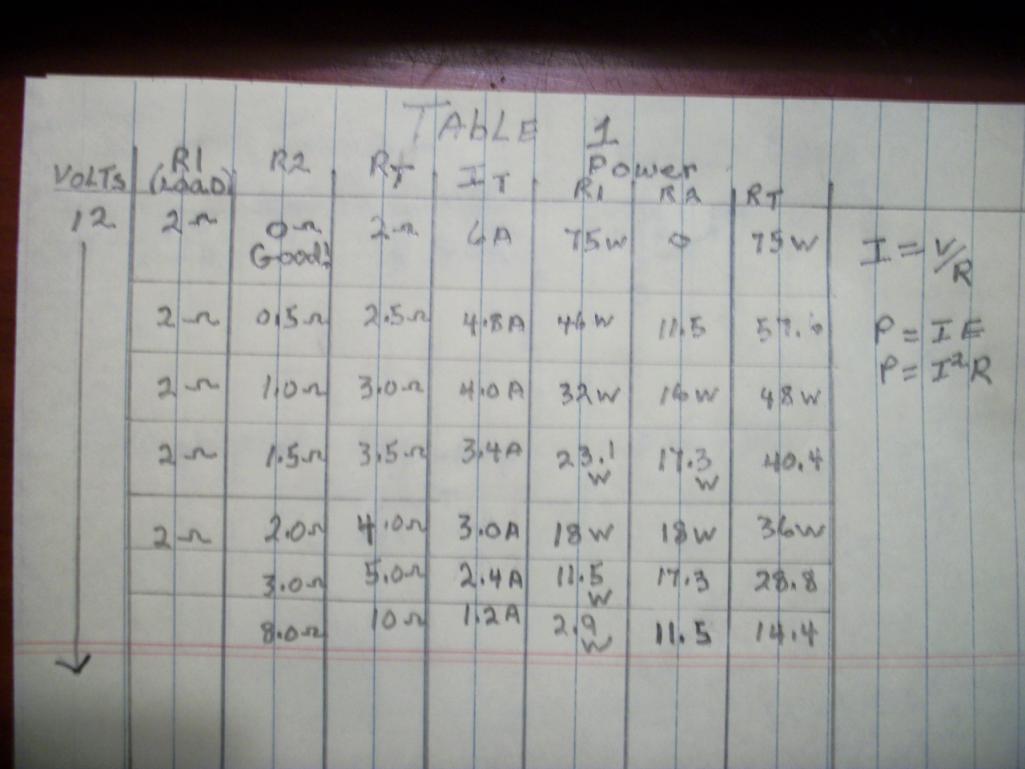 TABLE 1
VOLTS R1 (LOAD) R2 RT IT Power R1 R2 RT
12 2Ω 0Ω Good! 2Ω 6A 75W 0 75W
2Ω 0.5Ω 2.5Ω 4.8A 46W 11.5 57.6
2Ω 1.0Ω 3.0Ω 4.0A 32W 16W 48W
2Ω 1.5Ω 3.5Ω 3.4A 23.1 W 17.3 W 40.4
2Ω 2.0Ω 4.0Ω 3.0A 18W 18W 36W
3.0Ω 5.0Ω 2.4A 11.5 W 17.3 28.8
8.0Ω 10Ω 1.2A 2.9 W 11.5 14.4
I = V/R
P = IE
P = I²R